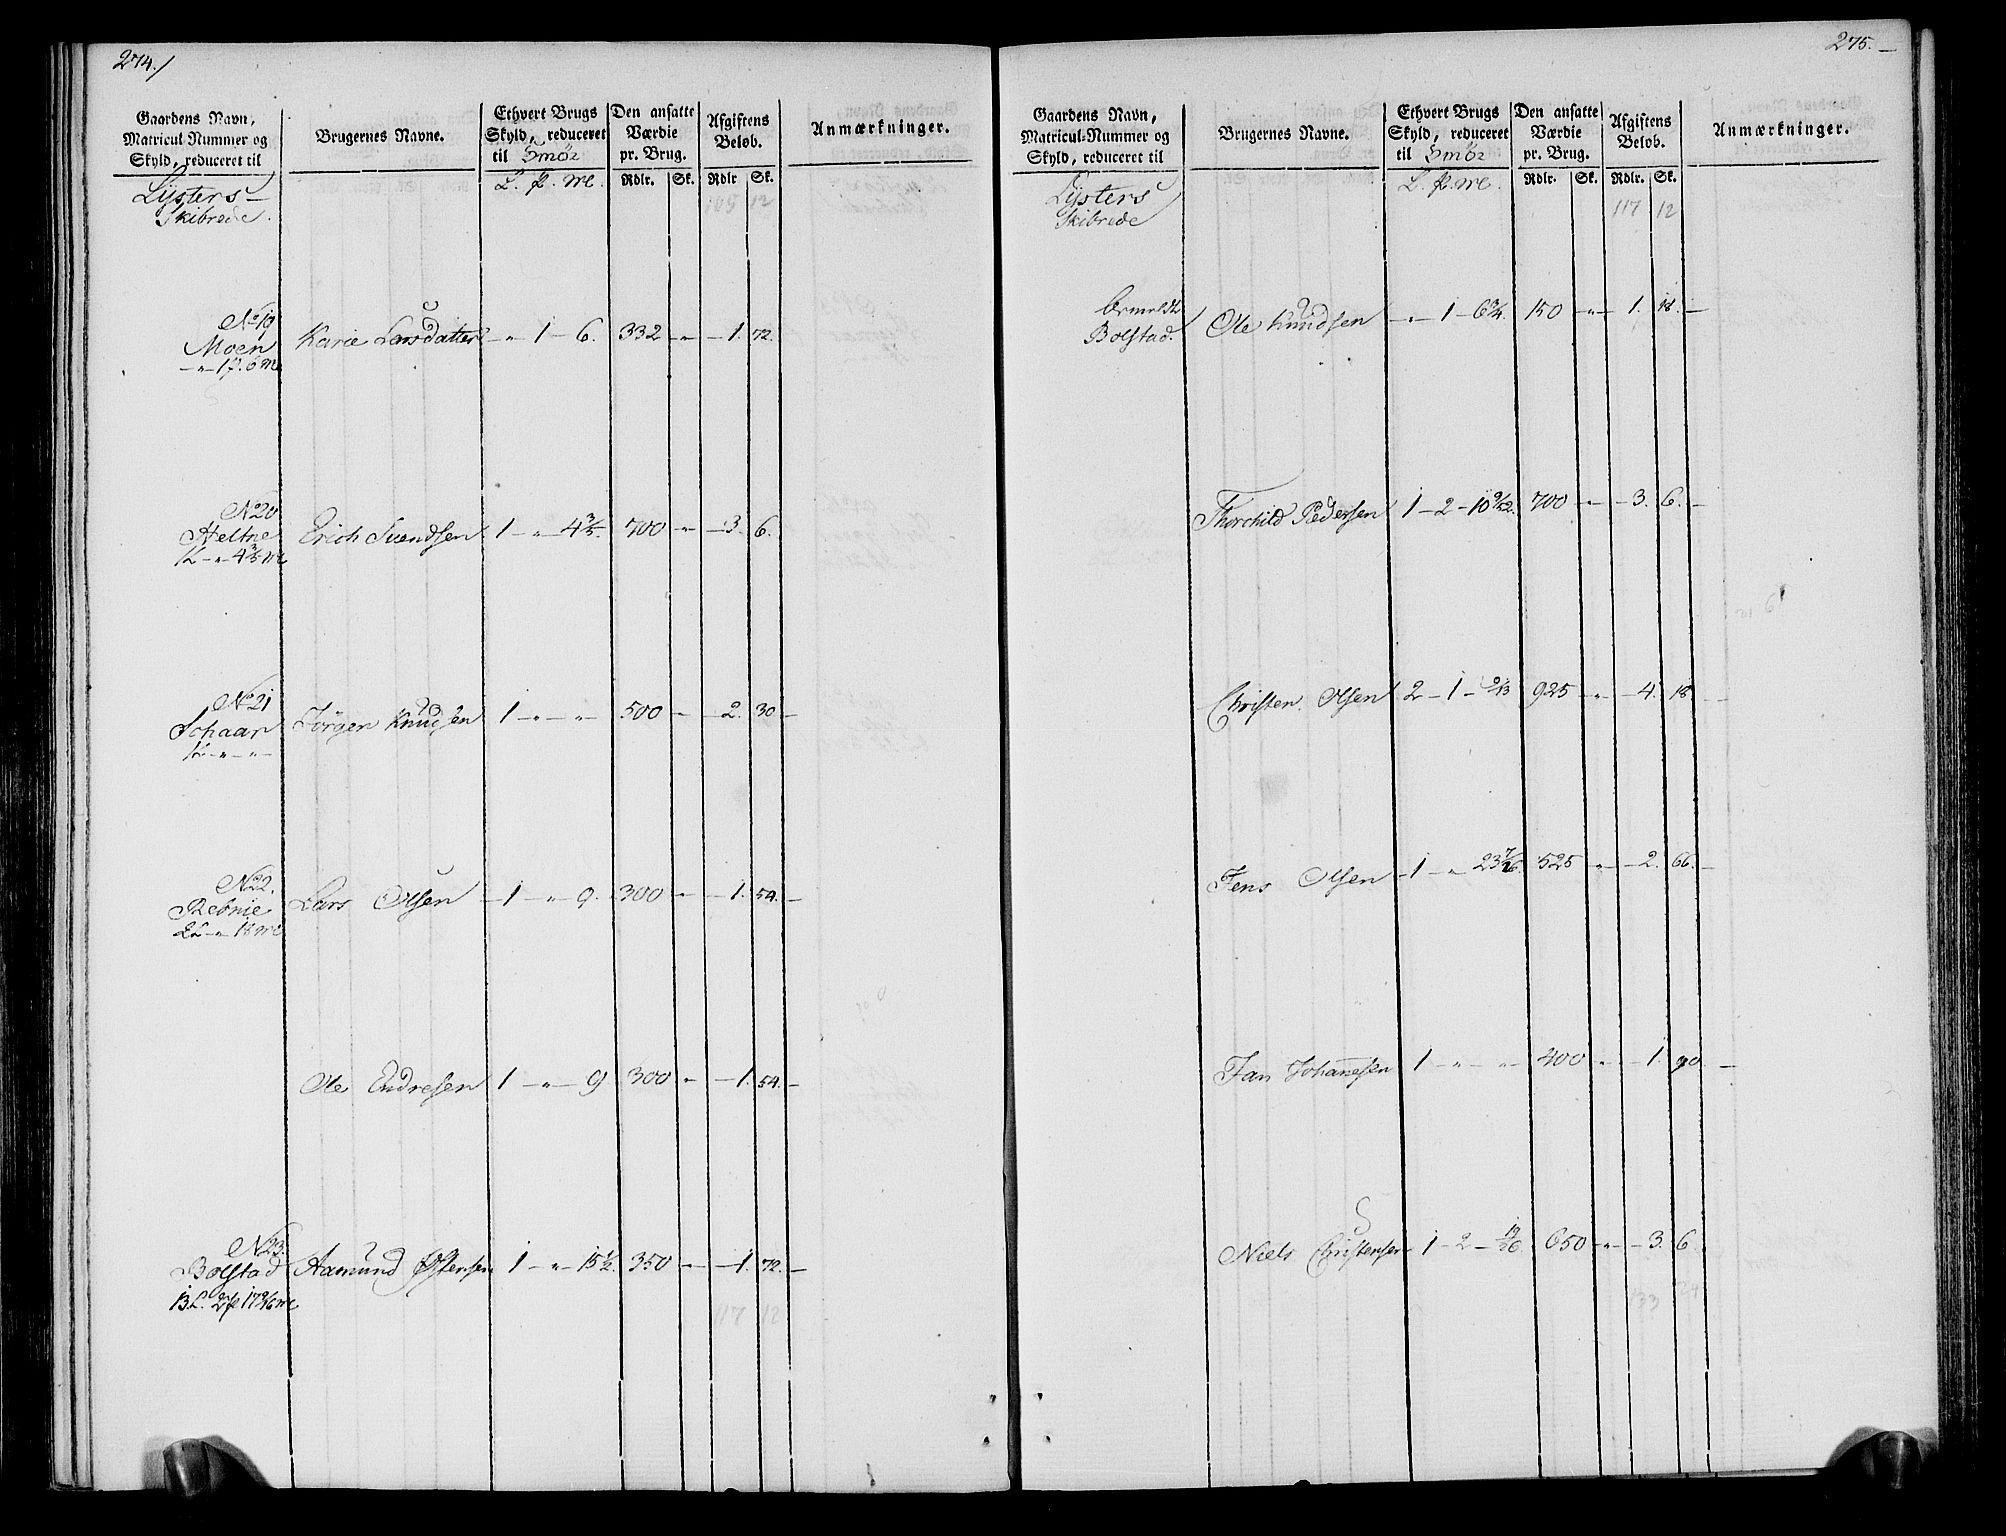 274./
Gaardens Navn, Matricul-Nummer og Skyld, reduceret til
Brugernes Navne.
Ethvert Brugs Skyld, reduceret til Smör
Den ansatte Værdie pr. Brug.
Afgiftens Beløb.
Anmærkninger.
L. p. ml.
Rdlr. Sk. Rdlr Sk.
Lÿsters-
Skibrede.
105 12
No 19
Moen
- " - 1 p. 6 ml
Karie Larsdatter - " - 1 - 6. 332 - " - 1. 72.
No 20
Heltne
1 L - " - 4 3/5 ml
Erich Svendsen 1 - " - 4 3/5. 700 - " - 3. 6.
No 21
Schaar
1 L - " - " -
Jörgen Knudsen 1 - " - " - 500 - 2. 30 -
No 22.
Rebnie
2 L - " - 18 ml
Lars Olsen - 1 - " - 9. 300 - " - 1. 54. -
Ole Endresen 1 - " - 9 300 - " - 1. 54. -
No 23.
Bolstad
Aamund Østensen 1 - " - 15 1/2. 350 - 1. 72. -
117 12
275. -
Gaardens Navn, Matricul-Nummer og Skyld, reduceret til
Brugernes Navne.
Ethvert Brugs Skyld, reduceret til Smör
Den ansatte Værdie pr. Brug.
Afgiftens Beløb.
Anmærkninger.
L. p. ml.
Rdlr. Sk. Rdlr. Sk.
Lÿsters
Skibrede
117 12
Bolstad.
Ole Knudsen - " - 1 - 6 3/4. 150 - " - 1. 18. -
Thorchild Pedersen 1 - 2 - 10 700 - " - 3. 6. -
Christen Olsen 2 - 1 - 925 - " - 4. 18 -
Jens Olsen - 1 - " 23 525 - " - 2. 66. -
Jan Johannesen 1 - " - " - 400 - " - 1. 90. -
Niels Christensen 1 - 2 - 650 - " - 3. 6. -
133 24